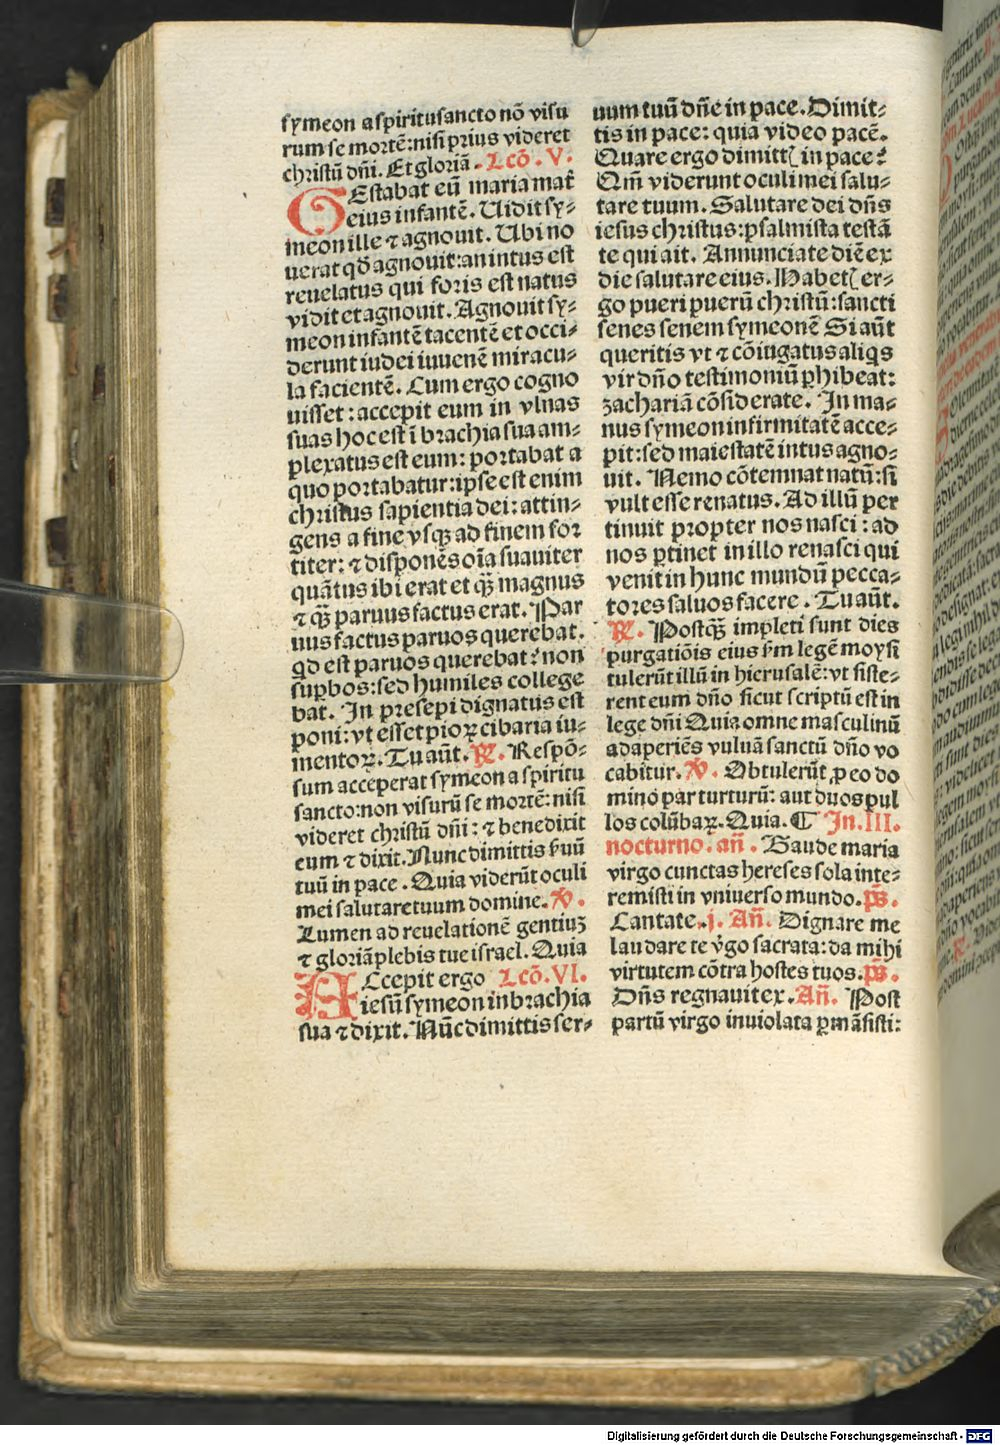 symeon a spiritusancto nō visu
rum se mortē: nisi prius videret
christū dñi. Et gloriā. Lcō. V.
GEstabat eū maria mať
eius infantē. Uidit sy⸗
meon ille ⁊ agnouit. Ubi no
uerat qd̄ agnouit: an intus est
reuelatus qui foris est natus
vidit et agnouit. Agnouit sy⸗
meon infantē tacentē et occi⸗
derunt iudei iuuenē miracu⸗
la facientē. Cum ergo cogno
uisset: accepit eum in vlnas
suas hoc est ī brachia sua am⸗
plexatus est eum: portabat a
quo portabatur: ipse est enim
christus sapientia dei: attin⸗
gens a fine vsqꝫ ad finem for
titer: ⁊ disponēs oīa suauiter
quātus ibi erat et qꝫ̄ magnus
⁊ qꝫ̄ paruus factus erat. Par
uus factus paruos querebat.
qd̄ est paruos querebat? non
suꝑbos: sed humiles college
bat. In presepi dignatus est
poni: vt esset pioꝝ cibaria iu⸗
mentoꝝ. Tu aūt. ℟. Respō⸗
sum acceperat symeon a spiritu
sancto: non visurū se mortē: nisi
videret christū dñi: ⁊ benedixit
eum ⁊ dixit. Nunc dimittis ẜuū
tuū in pace. Quia viderūt oculi
mei salutare tuum domine. ℣.
Lumen ad reuelationē gentiuꝫ
⁊ gloriā plebis tue israel. Quia
ACcepit ergo Lcō. VI.
iesū symeon in brachia
sua ⁊ dixit. Nūc dimittis ser⸗
uum tuū dñe in pace. Dimit⸗
tis in pace: quia video pacē.
Quare ergo dimittꝭ in pace?
Qm̄ viderunt oculi mei salu⸗
tare tuum. Salutare dei dñs
iesus christus: psalmista testā
te qui ait. Annunciate diē ex
die salutare eius. Habetꝭ er⸗
go pueri puerū christū: sancti
senes senem symeonē Si aūt
queritis vt ⁊ cōiugatus aliq̄s
vir dño testimoniū ꝑhibeat:
zachariā cōsiderate. In ma⸗
nus symeon infirmitatē acce⸗
pit: sed maiestatē intus agno⸗
uit. Nemo cōtemnat natū: si
vult esse renatus. Ad illū per
tinuit propter nos nasci: ad
nos ꝑtinet in illo renasci qui
venit in hunc mundū pecca⸗
tores saluos facere. Tu aūt.
℟. Postqꝫ̄ impleti sunt dies
purgatiōis eius ẜm legē moysi
tulerūt illū in hierusalē: vt siste⸗
rent eum dño sicut scriptū est in
lege dñi Quia omne masculinū
adaperiēs vuluā sanctū dño vo
cabitur. ℣. Obtulerūt ꝓ eo do
mino par turturū: aut duos pul
los colūbaꝝ. Quia. ¶ In. III.
nocturno. añ. Gaude maria
virgo cunctas hereses sola inte⸗
remisti in vniuerso mundo. p̄s.
Cantate. j. Añ. Dignare me
laudare te v̊go sacrata: da mihi
virtutem cōtra hostes tuos. p̄s.
Dñs regnauit ex. Añ. Post
partū virgo inuiolata ꝑmāsisti:
Digitalisierung gefördert durch die Deutsche Forschungsgemeinschaft - DFG